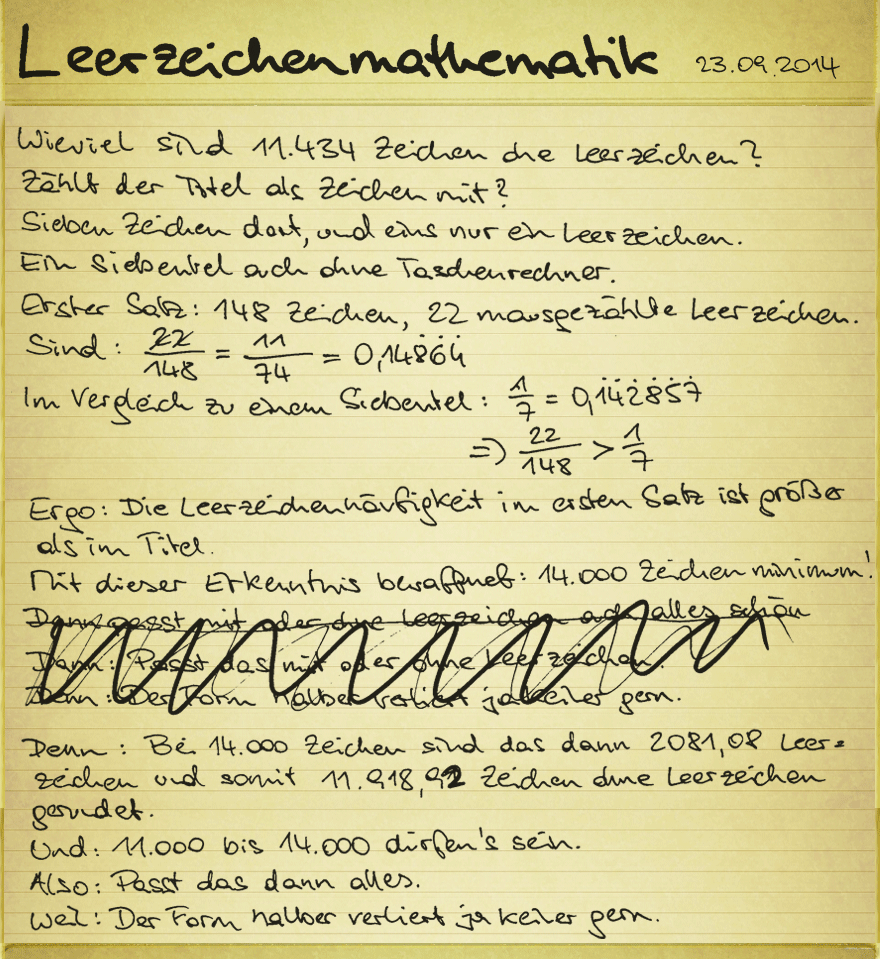 Leerzeichenmathematik 23.09.2014
Wieviel sind 11.434 Zeichen ohne Leerzeichen?
Zählt der Titel als Zeichen mit?
Sieben Zeichen dort, und eins nur ein Leerzeichen.
Ein Siebentel auch ohne Taschenrechner.
Erster Satz: 148 Zeichen, 22 mausgezählte Leerzeichen.
Sind: 22/148 = 11/74 = 0,14864
Im Vergleich zu einem Siebentel: 1/7 = 0,142857
=> 22/148 > 1/7
Ergo: Die Leerzeichenhäufigkeit im ersten Satz ist größer
als im Titel.
Mit dieser Erkenntnis bewaffnet: 14.000 Zeichen minimum!
Dann passt mit oder ohne Leerzeichen auch alles schön
Dann: Passt das mit oder ohne Leerzeichen.
Denn: Der Form halber verliert ja keiner gern.
Denn: Bei 14.000 Zeichen sind das dann 2081,08 Leer=
zeichen und somit 11.918,92 Zeichen ohne Leerzeichen
gerundet.
Und: 11.000 bis 14.000 dürfen's sein.
Also: Passt das dann alles.
Weil: Der Form halber verliert ja keiner gern.